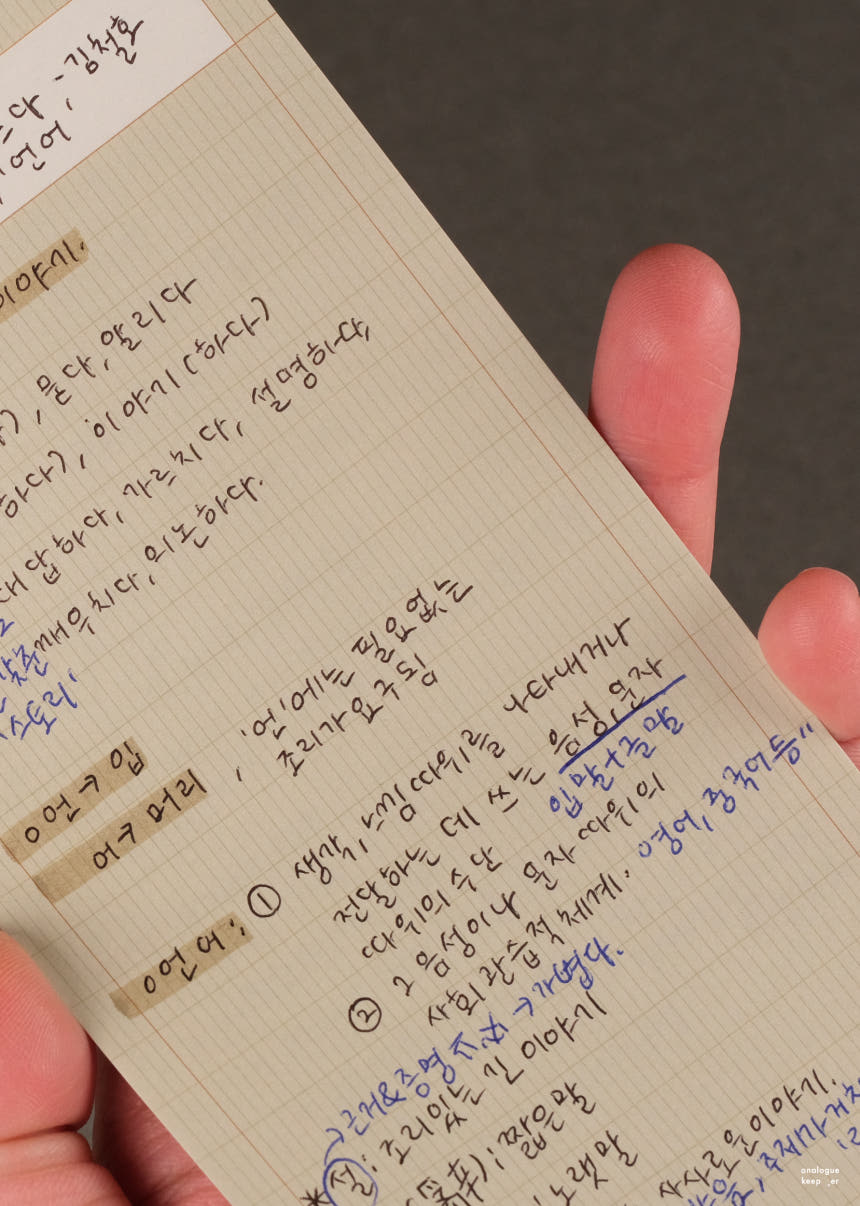 다, 김철호
언어,
이야기.
, 묻다, 알리다
하다), 이야기(하다)
대답하다, 가르치다, 설명하다,
깨우치다, 의논하다.
스토리'
○언→입
어→머리, '언'에는 필요없는
조리가 요구됨
○언어: ① 생각, 느낌 따위를 나타내거나
전달하는 데 쓰는 음성, 문자
입말+글말
따위의 수단
② 그 음성이나 문자 따위의
사회 관습적 체계. 영어, 중국어 등"
→근거&증명 → 가볍다.
*설: 조리있는 긴 이야기
: 짧은 말
노랫말
사사로운 이야기.
analogue
keep_er